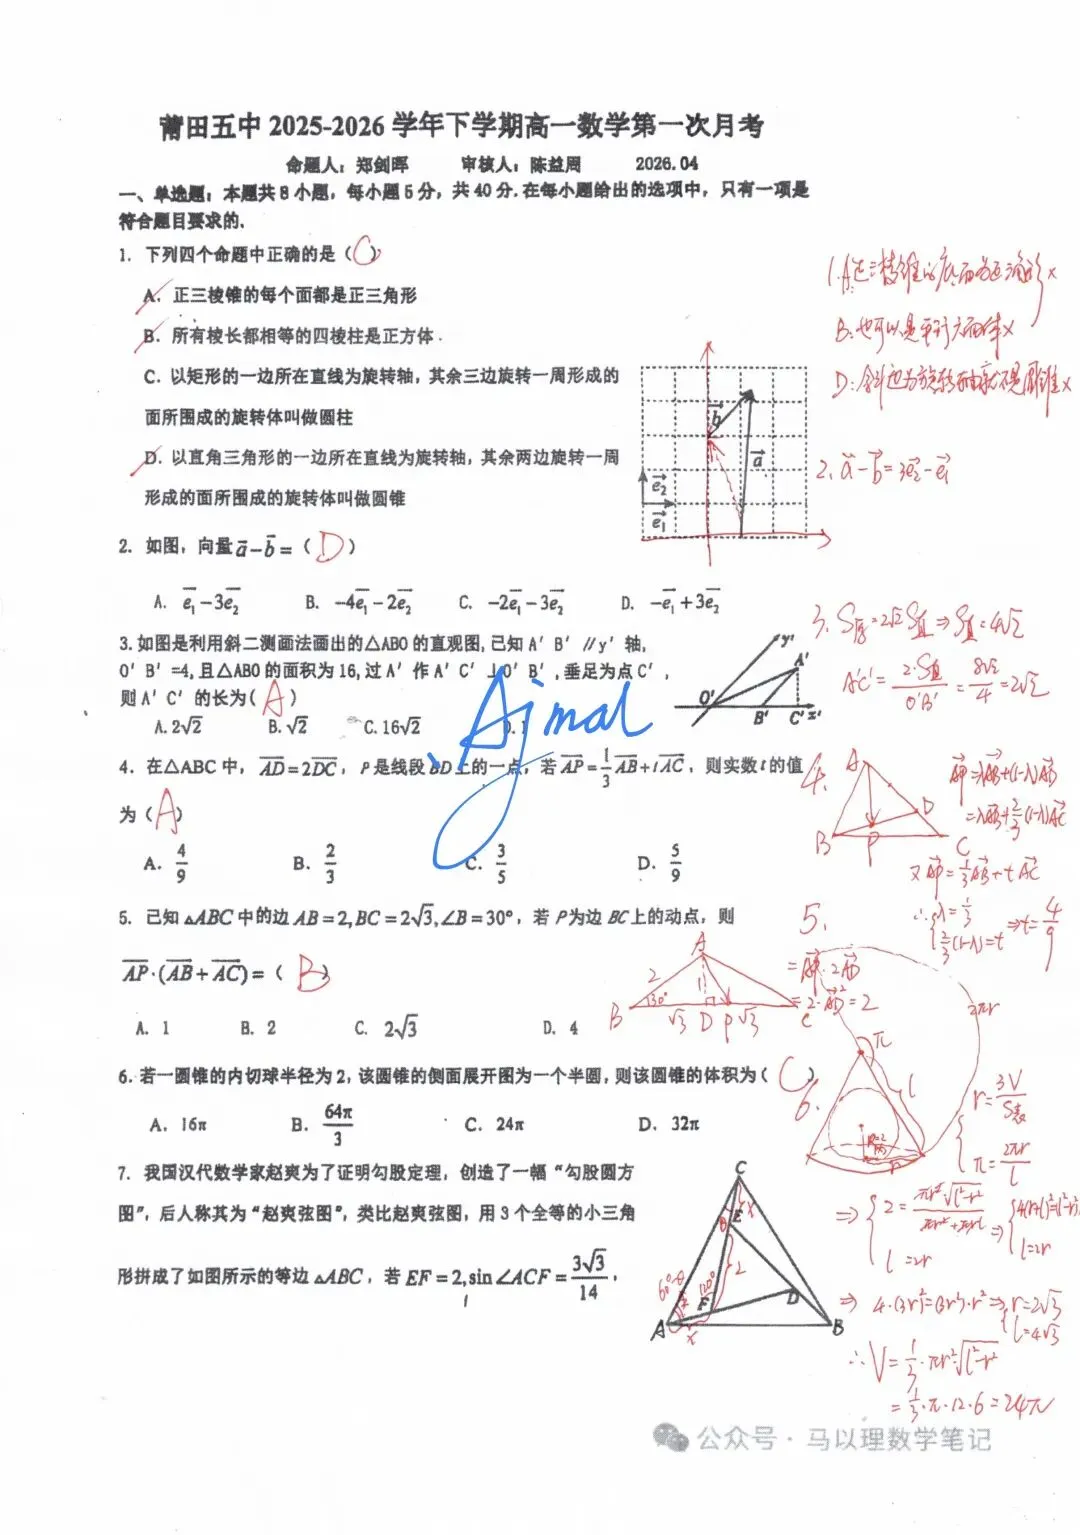 莆田五中 2025-2026 学年下学期高一数学第一次月考
命题人：郑剑晖 审核人：陈益周 2026.04
一、单选题：本题共 8 小题，每小题 5 分，共 40 分.在每小题给出的选项中，只有一项是
符合题目要求的.
1. 下列四个命题中正确的是（ C ）
A. 正三棱锥的每个面都是正三角形
B. 所有棱长都相等的四棱柱是正方体.
C. 以矩形的一边所在直线为旋转轴，其余三边旋转一周形成的
面所围成的旋转体叫做圆柱
D. 以直角三角形的一边所在直线为旋转轴，其余两边旋转一周
形成的面所围成的旋转体叫做圆锥
1. A:正三棱锥的底面为正三角形 ×
B:也可以是平行六面体×
D:斜边为旋转轴就不是圆锥×
b⃗
a⃗
e₂⃗
e₁⃗
2. a⃗-b⃗=3e₂⃗-e₁⃗
2. 如图，向量a⃗-b⃗=（ D ）
A. e₁⃗-3e₂⃗ B. -4e₁⃗-2e₂⃗ C. -2e₁⃗-3e₂⃗ D. -e₁⃗+3e₂⃗
3.如图是利用斜二测画法画出的△ABO的直观图,已知 A′B′∥y′轴,
O′B′=4,且△ABO的面积为16,过A′作A′C′⊥O′B′,垂足为点C′,
则A′C′的长为( A )
A.2√2 B.√2 C.16√2 D.1
y′ A′ O′ B′ C′ x′
3. S原=2√2 S直 ⇒ S直=4√2
A′C′=2·S直/O′B′=8√2/4=2√2
Ajmal
4. 在△ABC中，AD⃗=2DC⃗，P是线段BD上的一点，若AP⃗=1/3 AB⃗+tAC⃗，则实数t的值
为（ A ）
A. 4/9 B. 2/3 C. 3/5 D. 5/9
4. A B P D C
AP⃗=λAB⃗+(1-λ)AD⃗
=λAB⃗+2/3(1-λ)AC⃗
又AP⃗=1/3AB⃗+tAC⃗
∴{λ=1/3 2/3(1-λ)=t ⇒t=4/9
5. 已知△ABC中的边AB=2,BC=2√3,∠B=30°，若P为边BC上的动点，则
AP⃗·(AB⃗+AC⃗)=（ B ）
A. 1 B. 2 C. 2√3 D. 4
5. =AP⃗·2AD⃗
=2·AD⃗²=2
A 2 1 30° B √3 D P √3 C
6. 若一圆锥的内切球半径为2,该圆锥的侧面展开图为一个半圆,则该圆锥的体积为( C )
A. 16π B. 64π/3 C. 24π D. 32π
6. π l 2πr R=2 r
{r=3V/S表 π=2πr/l
⇒{2=πr²√(l²-r²)/(πr²+πrl) l=2r ⇒{4(r+l)²=(l²-r²)r² l=2r
⇒ 4·(3r)²=(3r²)·r² ⇒{r=2√3 l=4√3
∴V=1/3·πr²√(l²-r²)
=1/3·π·12·6=24π
7. 我国汉代数学家赵爽为了证明勾股定理，创造了一幅“勾股圆方
图”，后人称其为“赵爽弦图”，类比赵爽弦图，用3个全等的小三角
形拼成了如图所示的等边△ABC，若EF=2,sin∠ACF=3√3/14，
C θ E x 2 60°-θ 120° F D A x B
公众号·马以理数学笔记